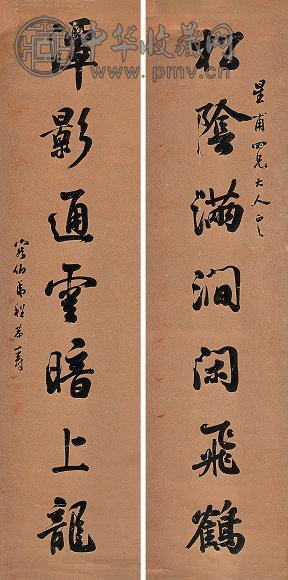 中华收藏网
www.pmv.cn
松陰滿澗閑飛鶴
星甫四兄大人正之
潭影通雲暗上龍
容伯弟程恭壽